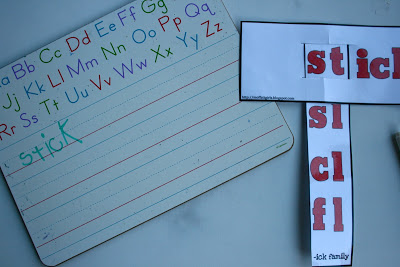 Aa Bb Cc Dd Ee Ff Gg Hh Ii
Jj Kk Ll Mm Nn Oo Pp Qq
Rr Ss Tt Uu Vv Ww Xx Yy Zz
stick
stick
sl
cl
fl
-ick family